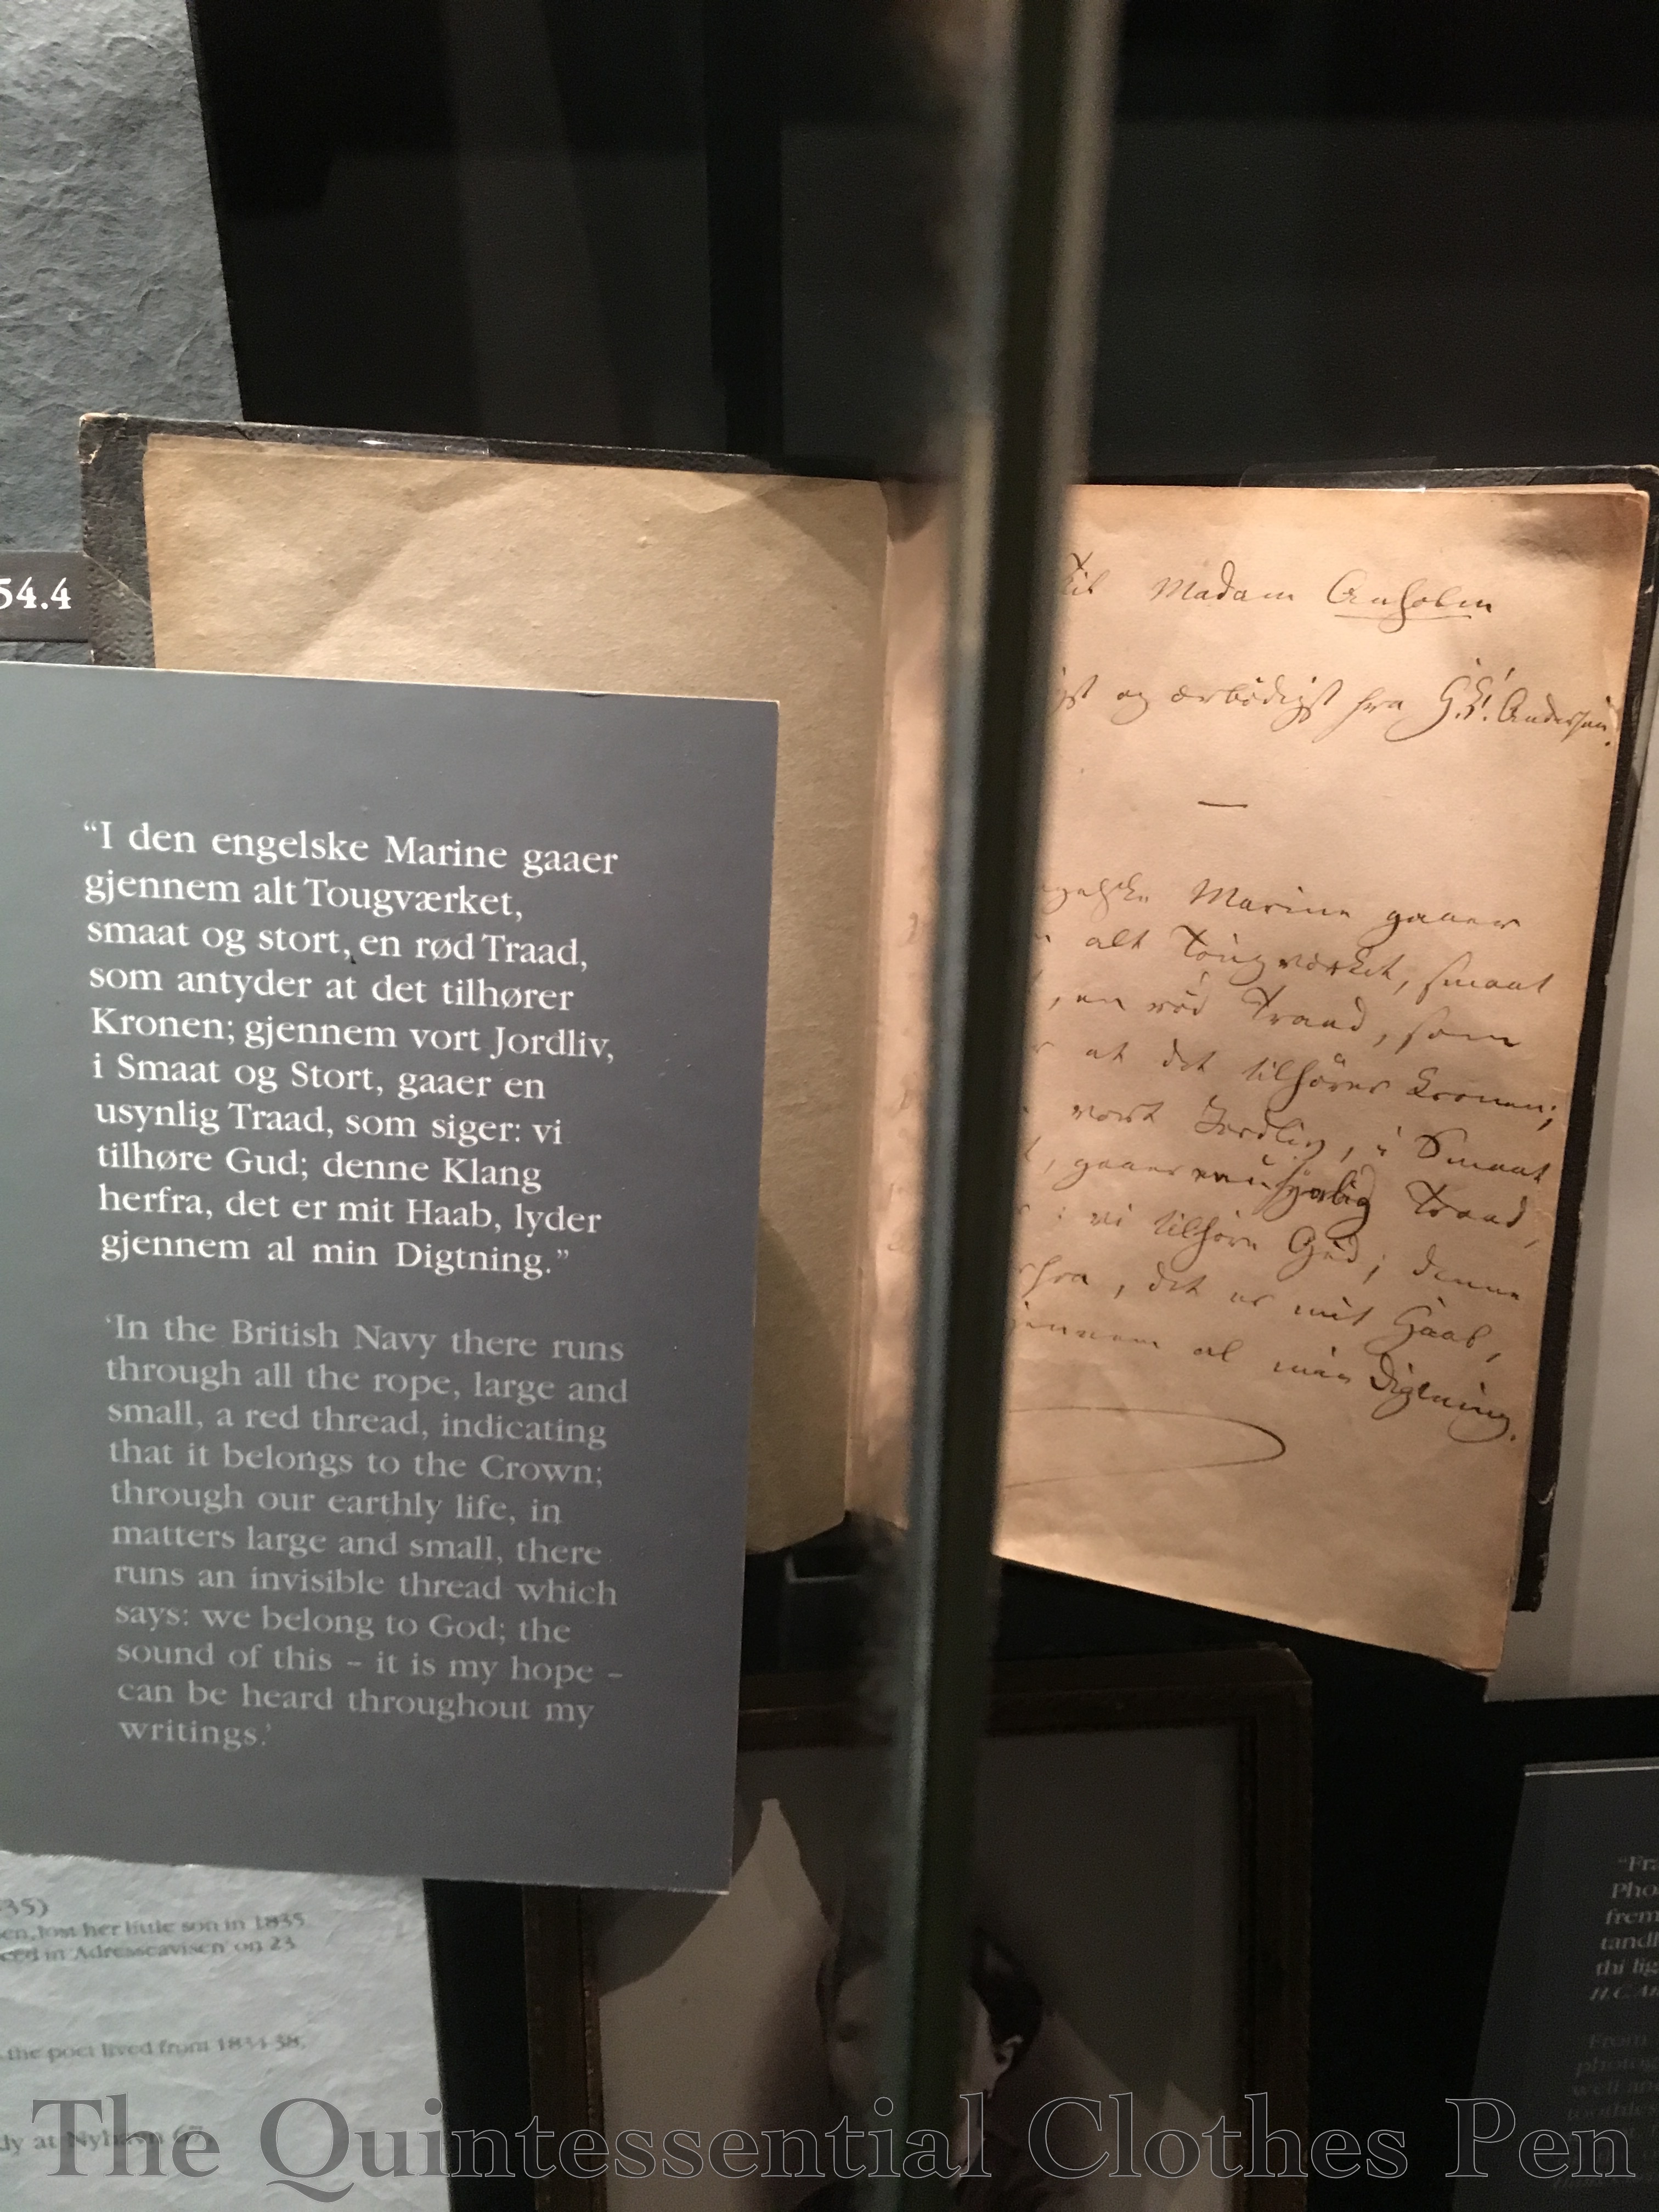 54.4
“I den engelske Marine gaaer
gjennem alt Tougværket,
smaat og stort, en rød Traad,
som antyder at det tilhører
Kronen; gjennem vort Jordliv,
i Smaat og Stort, gaaer en
usynlig Traad, som siger: vi
tilhøre Gud; denne Klang
herfra, det er mit Haab, lyder
gjennem al min Digtning.”
‘In the British Navy there runs
through all the rope, large and
small, a red thread, indicating
that it belongs to the Crown;
through our earthly life, in
matters large and small, there
runs an invisible thread which
says: we belong to God; the
sound of this – it is my hope –
can be heard throughout my
writings.’
Til Madam Anholm
og ærbødigst fra H.C. Andersen.
Marine gaaer
alt Tougværket, smaat
, en rød Traad, som
at det tilhører Kronen;
vort Jordliv, i Smaat
, gaaer en usynlig Traad,
: vi tilhøre Gud; denne
, det er mit Haab,
al min Digtning.
35)
lost her little son in 1835
in Adresseavisen' on 23
the poet lived from 1834-38,
at Nyhavn 67
“Fra
Pho
frem
tandl
thi lig
H.C. A
From
photog
well and
toothles
The Quintessential Clothes Pen